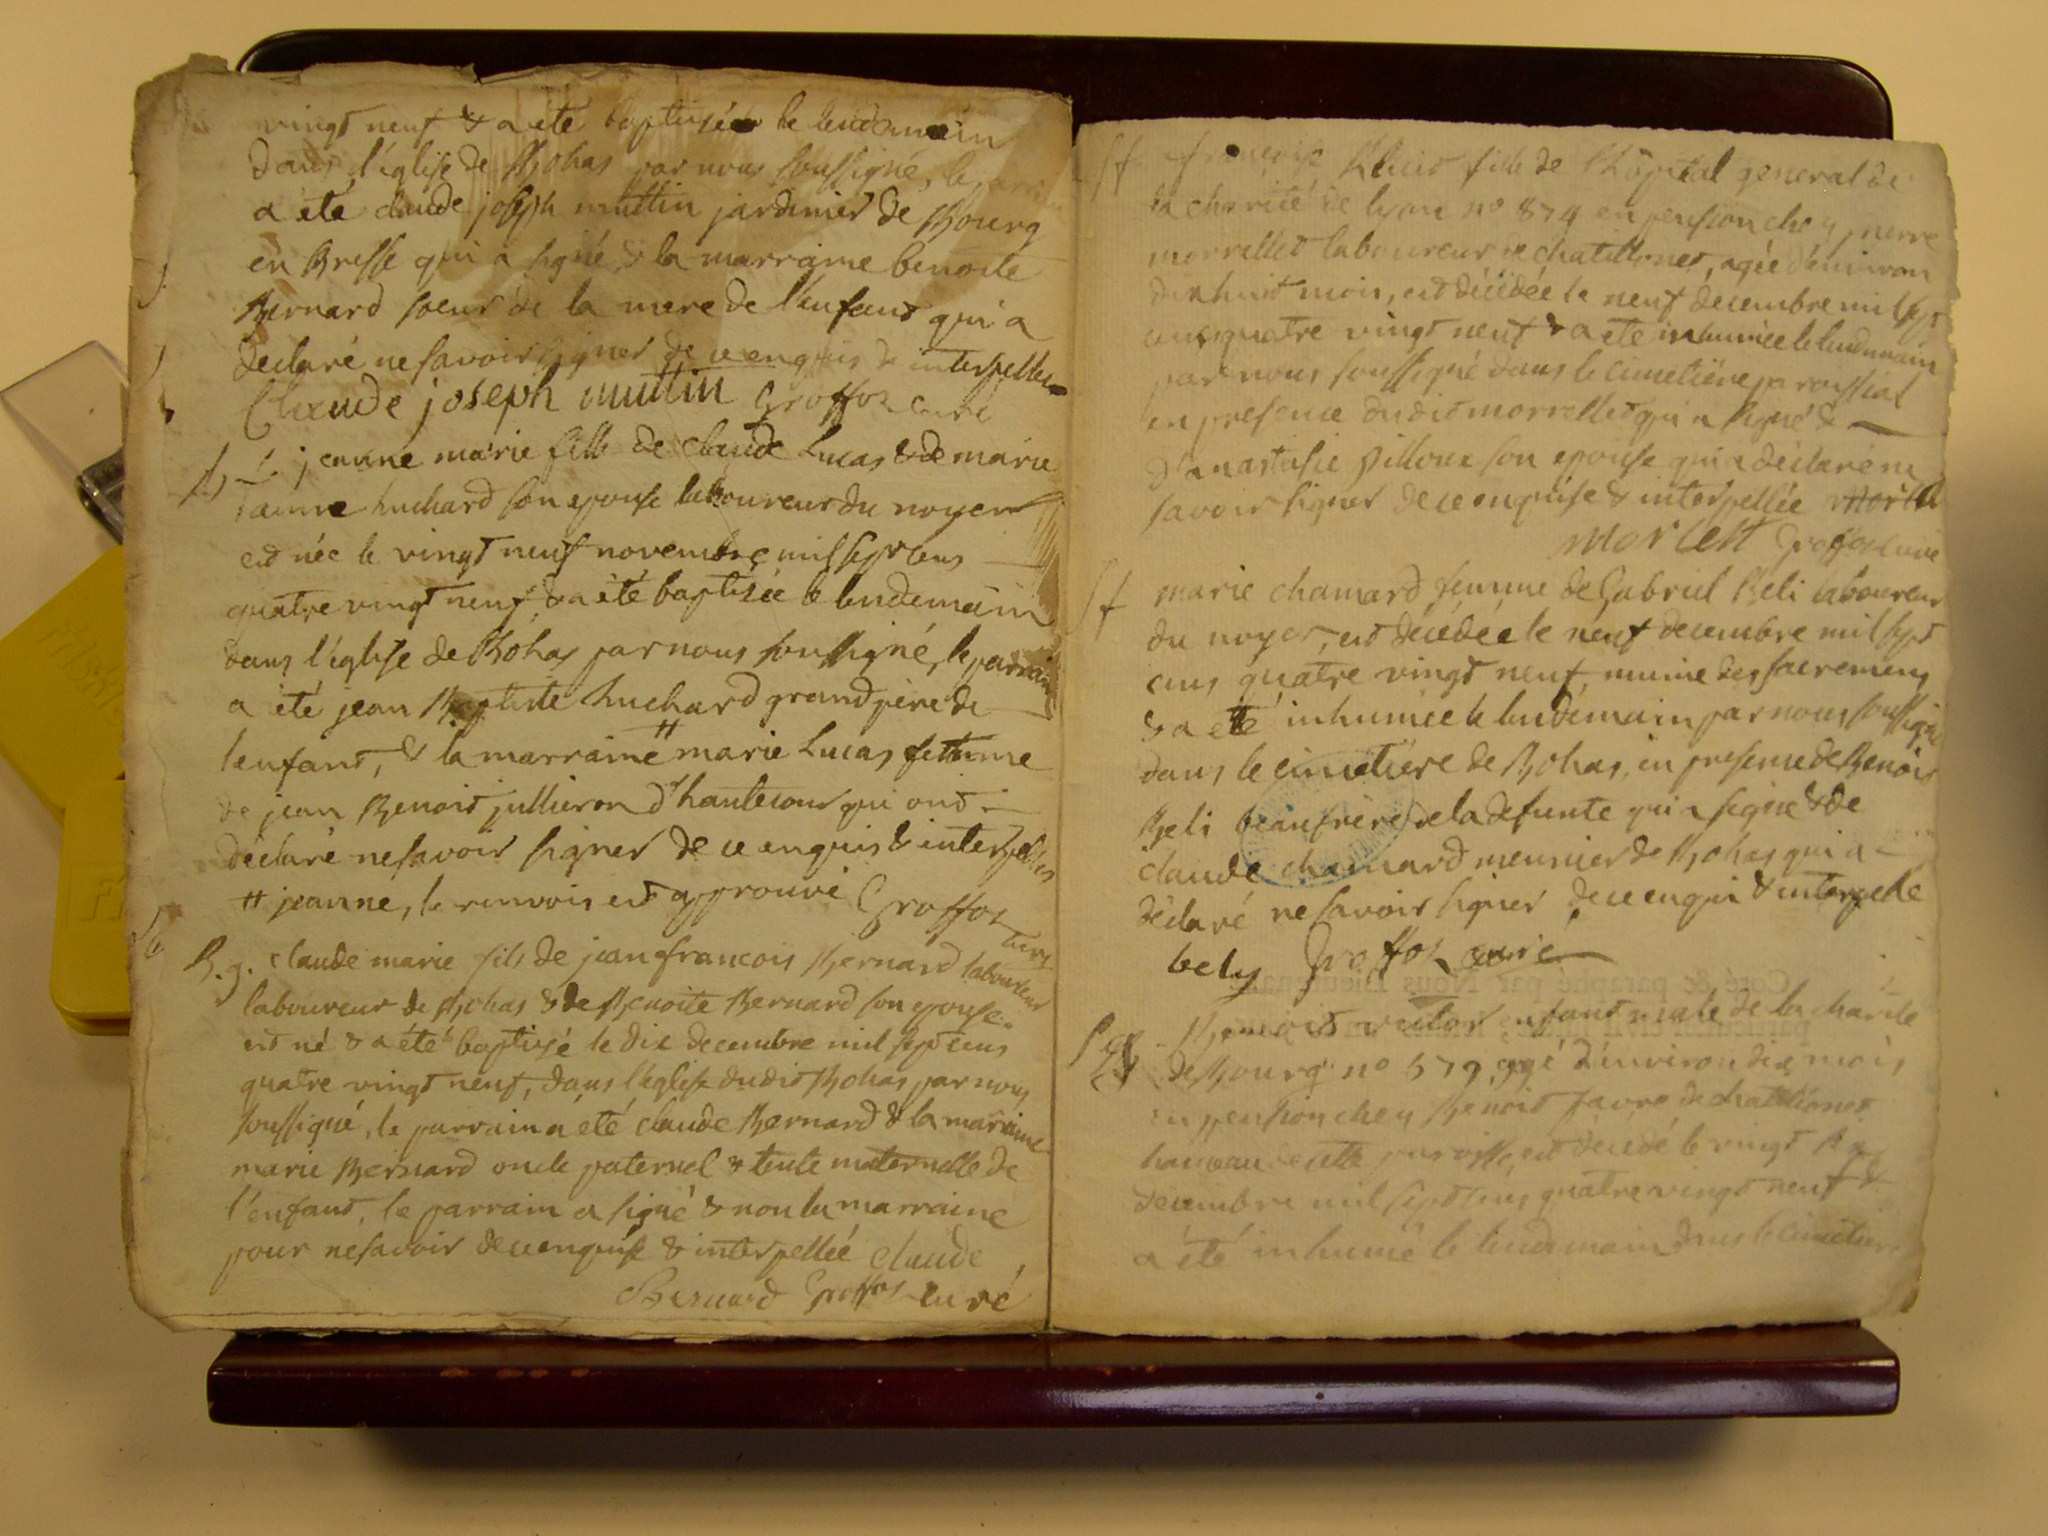 vingt neuf & a été baptisée le lendemain
dans l'église de Bohas par nous soussigné, le parrain
a été claude joseph muttin jardinier de Bourg
en Bresse qui a signé & la marraine benoite
Bernard soeur de la mere de l'enfant qui a
declaré ne savoir signer de ce enquis & interpellée
Claude joseph muttin Groffoz curé
jeanne marie fille de claude Lucas & de marie
janne huchard son epouse laboureur du noyer
est née le vingt neuf novembre mil sept cens
quatre vingt neuf & a été baptisée le lendemain
dans l'église de Bohas par nous soussigné, le parrain
a été jean Baptiste huchard grand père de
l'enfant, & la marraine # marie Lucas femme
de jean Benoit jullieron d'hautecour qui ont
déclaré ne savoir signer de ce enquis & interpellés
# jeanne, le renvois est approuvé Groffoz curé
B. g. claude marie fils de jean francois Bernard laboureur
laboureur de Bohas & de Benoite Bernard son epouse
est né & a été baptisé le dix decembre mil sept cens
quatre vingt neuf, dans l'eglise dudit Bohas par nous
soussigné, le parrain a été claude Bernard & la marraine
marie Bernard oncle paternel & tente maternelle de
l'enfant, le parrain a signé & non la marraine
pour ne savoir de ce enquise & interpellée claude
Bernard Groffoz curé
Sf françoise fille de l'hôpital general de
la charité de lyon no 874 en pension chez pierre
morrellet laboureur de chatillonet, agée d'environ
dix huit mois, est décédée le neuf decembre mil sept
cens quatre vingt neuf & a été inhumée le lendemain
par nous soussigné dans le cimetière paroissial
en presence dudit morrellet qui a signé &
d'anastasie pilloux son epouse qui a déclaré ne
savoir signer de ce enquise & interpellée
morlett Groffoz curé
Sf marie chamard femme de Gabriel Beli laboureur
du noyer, est décédée le neuf decembre mil sept
cens quatre vingt neuf munie des sacremens
& a été inhumée le lendemain par nous soussigné
dans le cimetière de Bohas, en presence de Benoit
Beli beaufrère de la defunte qui a signé & de
claude chamard meunier de Bohas qui a
déclaré ne savoir signer de ce enqui & interpellé
bely Groffoz curé
Coté & paraphé par Nous Lieutenant
Benoit victor enfant male de la charité
de Bourg no 579 agé d'environ dix mois
en pension chez Benoit favre de chatillonet
hameau de cette paroisse, est decedé le vingt
decembre mil sept cens quatre vingt neuf &
a été inhumé le lendemain dans le cimetiere